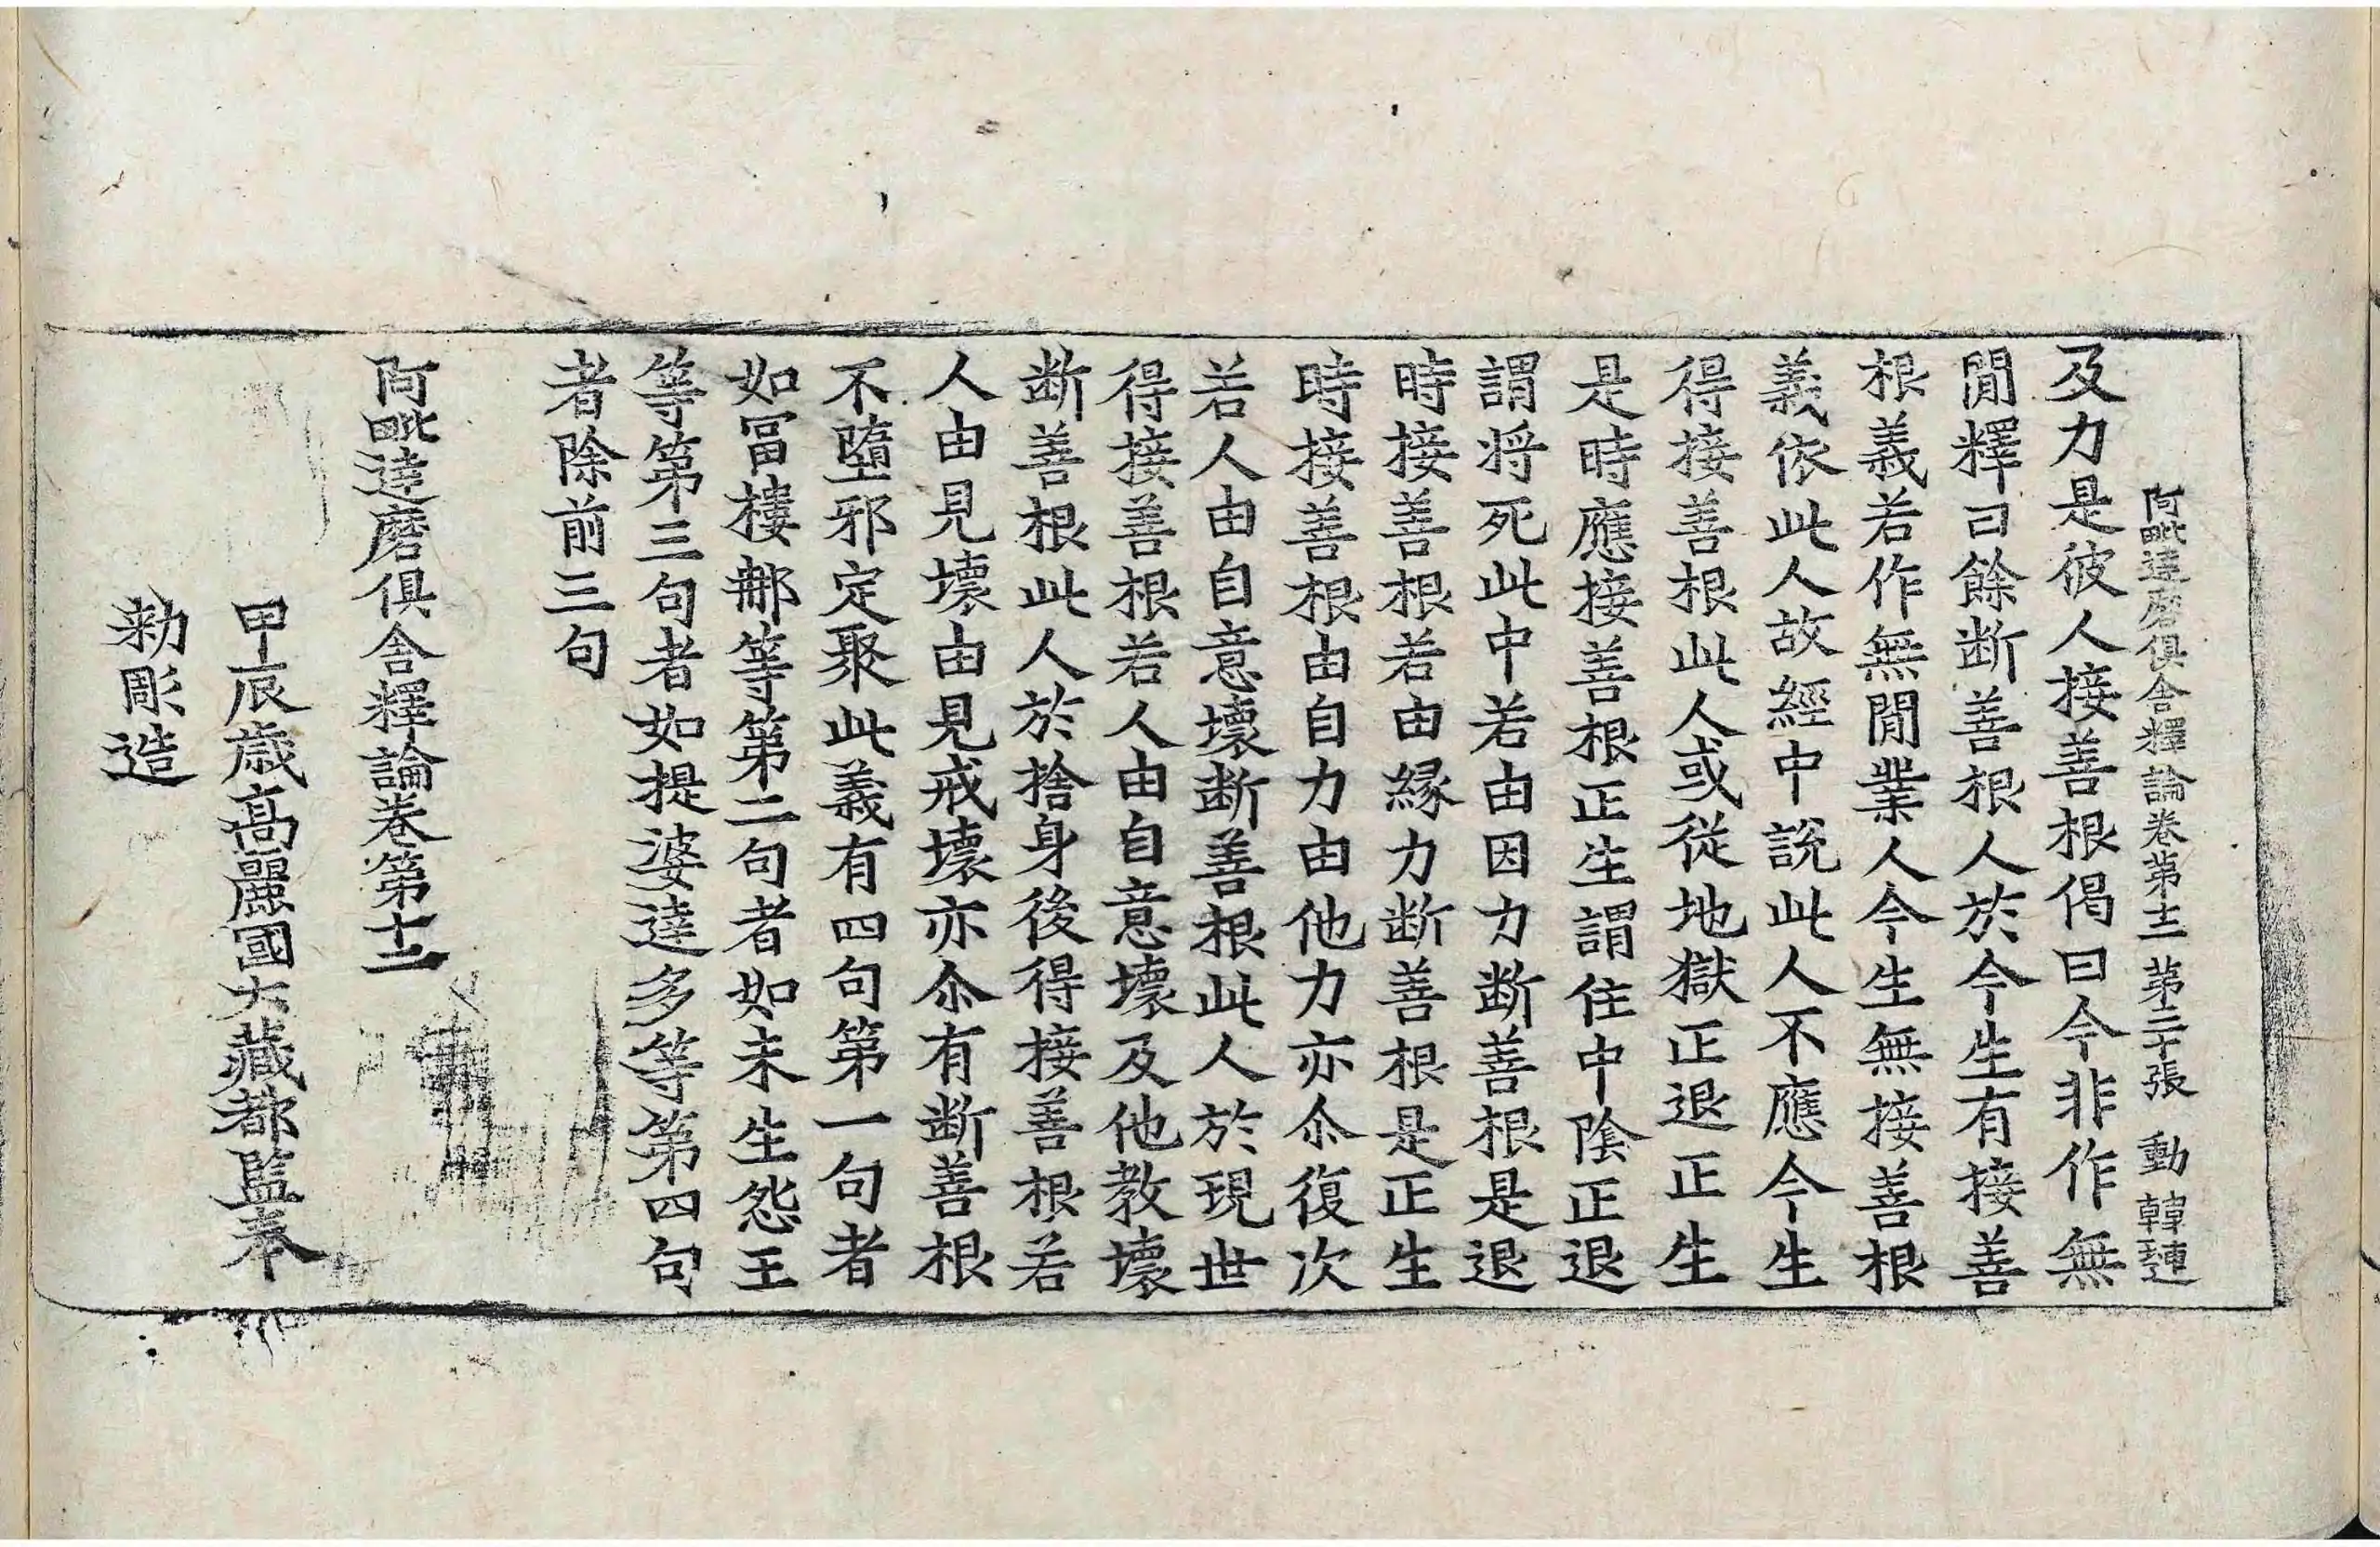 阿毗達磨俱舍釋論卷第十二 第二十張 動 韓璉
及力是彼人接善根偈曰今非作無
閒釋曰餘断善根人於今生有接善
根義若作無閒業人今生無接善根
義依此人故經中說此人不應今生
得接善根此人或從地獄正退正生
是時應接善根正生謂住中陰正退
謂將死此中若由因力断善根是退
時接善根若由緣力断善根是正生
時接善根由自力由他力亦尒復次
若人由自意壞断善根此人於現世
得接善根若人由自意壞及他教壞
断善根此人於捨身後得接善根若
人由見壞由見戒壞亦尒有断善根
不墮邪定聚此義有四句第一句者
如冨樓那等第二句者如未生怨王
等第三句者如提婆達多等第四句
者除前三句
阿毗達磨俱舍釋論卷第十二
甲辰歳高麗國大藏都監奉
勑彫造